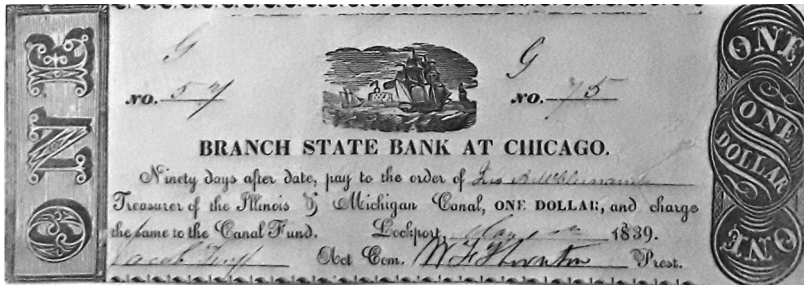 ONE
G G
NO. 57 NO. 75
BRANCH STATE BANK AT CHICAGO.
Ninety days after date, pay to the order of
Treasurer of the Illinois & Michigan Canal, ONE DOLLAR, and charge
the same to the Canal Fund. Lockport, 1839.
Jacob Fry Act Com. W F Thornton Prest.
ONE
ONE DOLLAR
ONE